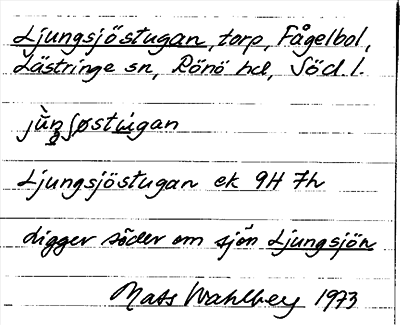 Ljungsjöstugan, torp, Fågelbol,
Lästringe sn, Rönö hd, Söd. l.
jùn̥ʃøstu̇gan
Ljungsjöstugan ek 9H 7h
Ligger söder om sjön Ljungsjön
Mats Wahlberg 1973